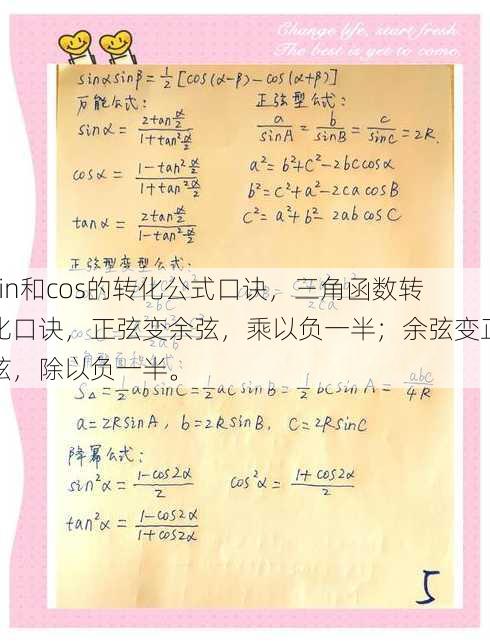 Change life, start fresh.
The best is yet to come.
sinαsinβ = 1/2 [cos(α-β) - cos(α+β)]
万能公式: 正弦型公式:
sinα = 2tan α/2 / 1+tan² α/2
a/sinA = b/sinB = c/sinC = 2R.
cosα = 1-tan² α/2 / 1+tan² α/2
a² = b²+c²-2bccosα
b² = c²+a²-2cacosB
tanα = 2tan α/2 / 1-tan² α/2
c² = a²+b²-2abcosC
正弦型变型公式:
in和cos的转化公式口诀，三角函数转
化口诀，正弦变余弦，乘以负一半；余弦变正
弦，除以负一半。
S△ = 1/2 absinC = 1/2 acsinB = 1/2 bcsinA = abc/4R
a=2RsinA, b=2RsinB, c=2RsinC
降幂公式:
sin²α = 1-cos2α / 2 cos²α = 1+cos2α / 2
tan²α = 1-cos2α / 1+cos2α
5